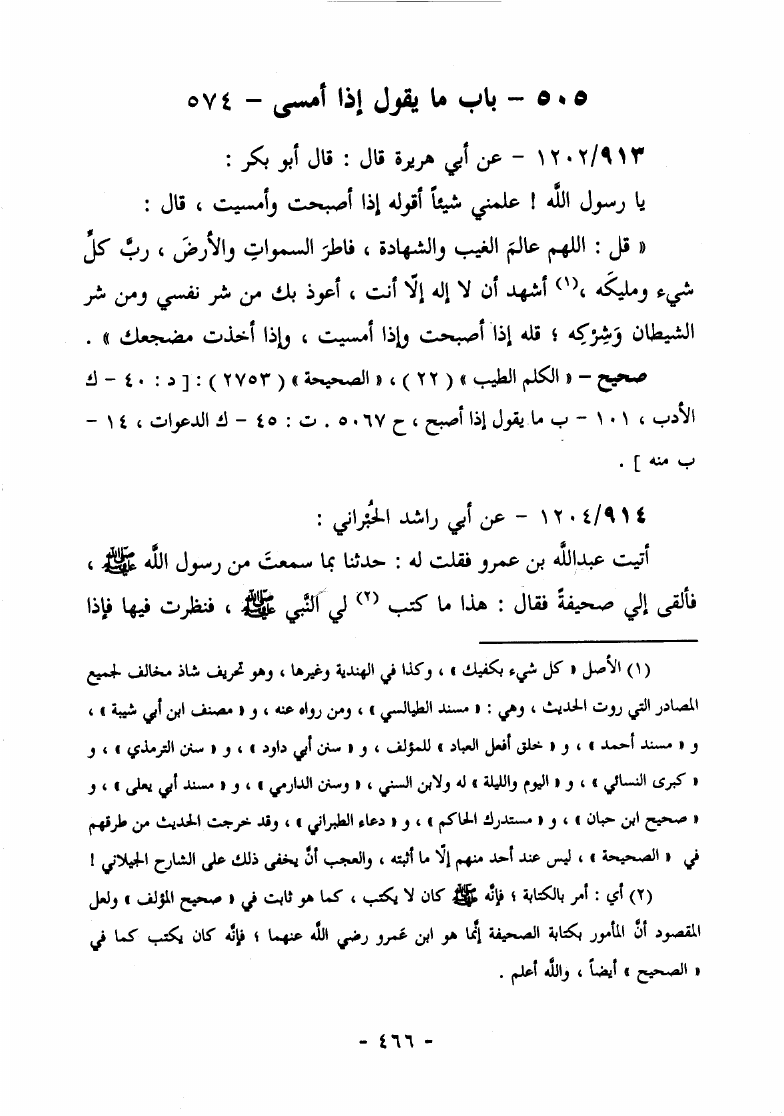 ٥٠٥ - باب ما يقول إذا أمسى - ٥٧٤
١٢٠٢/٩١٣ - عن أبي هريرة قال : قال أبو بكر :
يا رسول اللَّه ! علمني شيئاً أقوله إذا أصبحت وأمسيت ، قال :
« قل : اللهم عالمَ الغيب والشهادة ، فاطرَ السمواتِ والأرضَ ، ربَّ كلِّ
شيء ومليكَه ،(١) أشهد أن لا إله إلّا أنت ، أعوذ بك من شر نفسي ومن شر
الشيطان وَشِرْكِه ؛ قله إذا أصبحت وإذا أمسيت ، وإذا أخذت مضجعك » .
صحيح – « الكلم الطيب » ( ٢٢ ) ، « الصحيحة » ( ٢٧٥٣ ) : [ د : ٤٠ - ك
الأدب ، ١٠١ - ب ما يقول إذا أصبح ، ح ٥٠٦٧ . ت : ٤٥ - ك الدعوات ، ١٤ -
ب منه ] .
١٢٠٤/٩١٤ - عن أبي راشد الحُبْراني :
أتيت عبداللَّه بن عمرو فقلت له : حدثنا بما سمعتَ من رسول اللَّه ﷺ ،
فألقى إلي صحيفةً فقال : هذا ما كتب (٢) لي النَّبي ﷺ ، فنظرت فيها فإذا
(١) الأصل « كل شيء بكفيك » ، وكذا في الهندية وغيرها ، وهو تحريف شاذ مخالف لجميع
المصادر التي روت الحديث ، وهي : « مسند الطيالسي » ، ومن رواه عنه ، و « مصنف ابن أبي شيبة » ،
و « مسند أحمد » ، و « خلق أفعل العباد » للمؤلف ، و « سنن أبي داود » ، و « سنن الترمذي » ، و
« كبرى النسائي » ، و « اليوم والليلة » له ولابن السني ، « وسنن الدارمي » ، و « مسند أبي يعلى » ، و
« صحيح ابن حبان » ، و « مستدرك الحاكم » ، و « دعاء الطبراني » ، وقد خرجت الحديث من طرقهم
في « الصحيحة » ، ليس عند أحد منهم إلّا ما أثبته ، والعجب أنَّ يخفى ذلك على الشارح الجيلاني !
(٢) أي : أمر بالكتابة ؛ فإنَّه ﷺ كان لا يكتب ، كما هو ثابت في « صحيح المؤلف » ولعل
المقصود أنَّ المأمور بكتابة الصحيفة إنَّما هو ابن عَمرو رضي اللَّه عنهما ؛ فإنَّه كان يكتب كما في
« الصحيح » أيضاً ، واللَّه أعلم .
- ٤٦٦ -